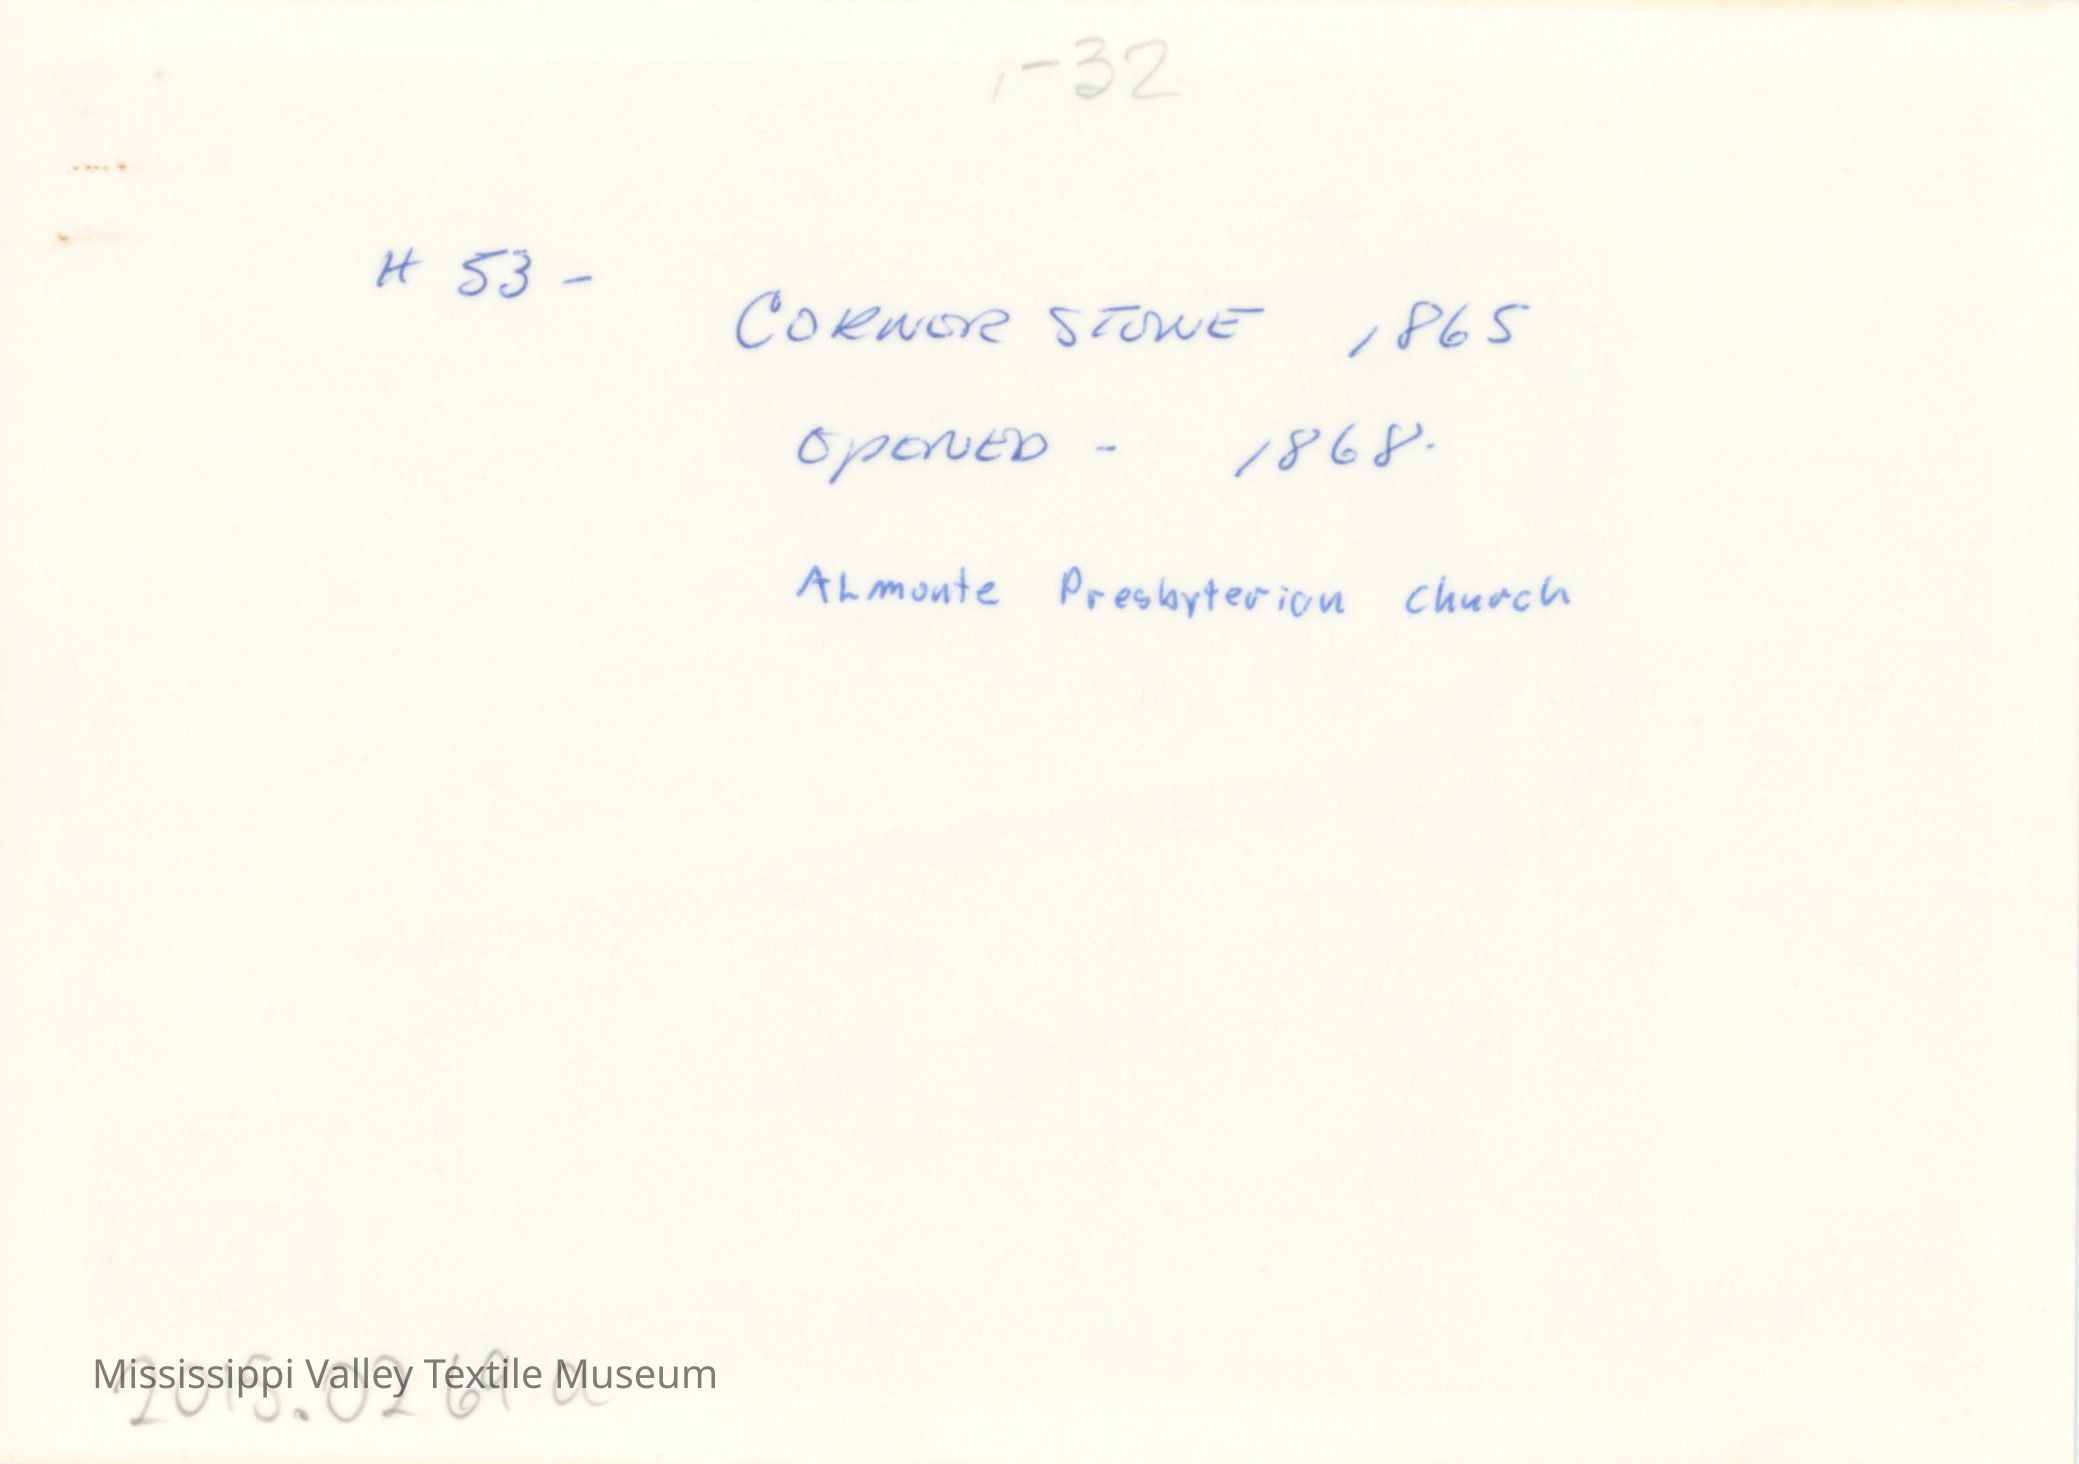 1-32
# 53 -
CORNER STONE 1865
OPENED - 1868.
ALmonte Presbyterian church
Mississippi Valley Textile Museum